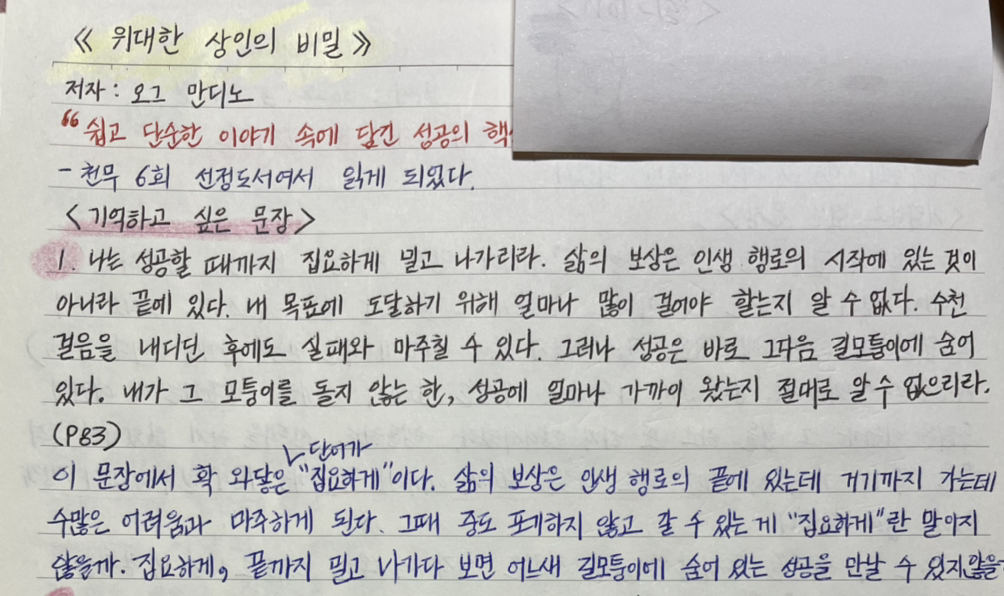 《 위대한 상인의 비밀 》
저자 : 오그 만디노
“쉽고 단순한 이야기 속에 담긴 성공의 핵
- 천무 6회 선정도서여서 읽게 되었다.
<기억하고 싶은 문장>
1. 나는 성공할 때까지 집요하게 밀고 나가리라. 삶의 보상은 인생 행로의 시작에 있는 것이
아니라 끝에 있다. 내 목표에 도달하기 위해 얼마나 많이 걸어야 할는지 알 수 없다. 수천
걸음을 내디딘 후에도 실패와 마주칠 수 있다. 그러나 성공은 바로 그다음 길모퉁이에 숨어
있다. 내가 그 모퉁이를 돌지 않는 한, 성공에 얼마나 가까이 왔는지 절대로 알 수 없으리라.
(P83)
단어가
이 문장에서 확 와닿은 "집요하게"이다. 삶의 보상은 인생 행로의 끝에 있는데 거기까지 가는데
수많은 어려움과 마주하게 된다. 그때 중도 포기하지 않고 갈 수 있는 게 "집요하게"란 말이지
않을까. 집요하게, 끝까지 밀고 나가다 보면 어느새 길모퉁이에 숨어 있는 성공을 만날 수 있지않을